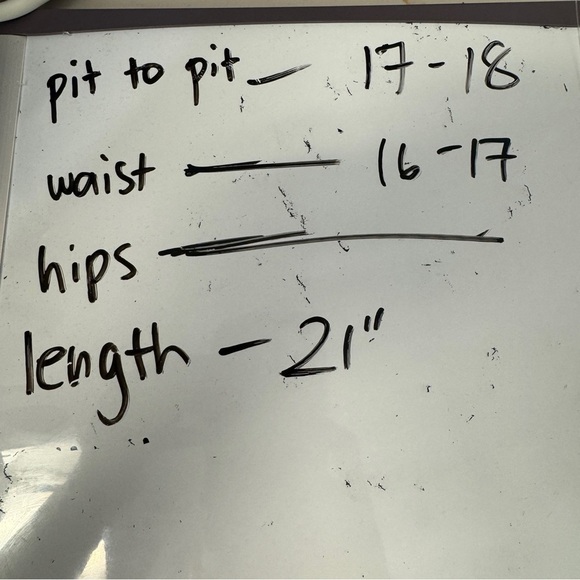 pit to pit — 17-18
waist — 16-17
hips —
length - 21"